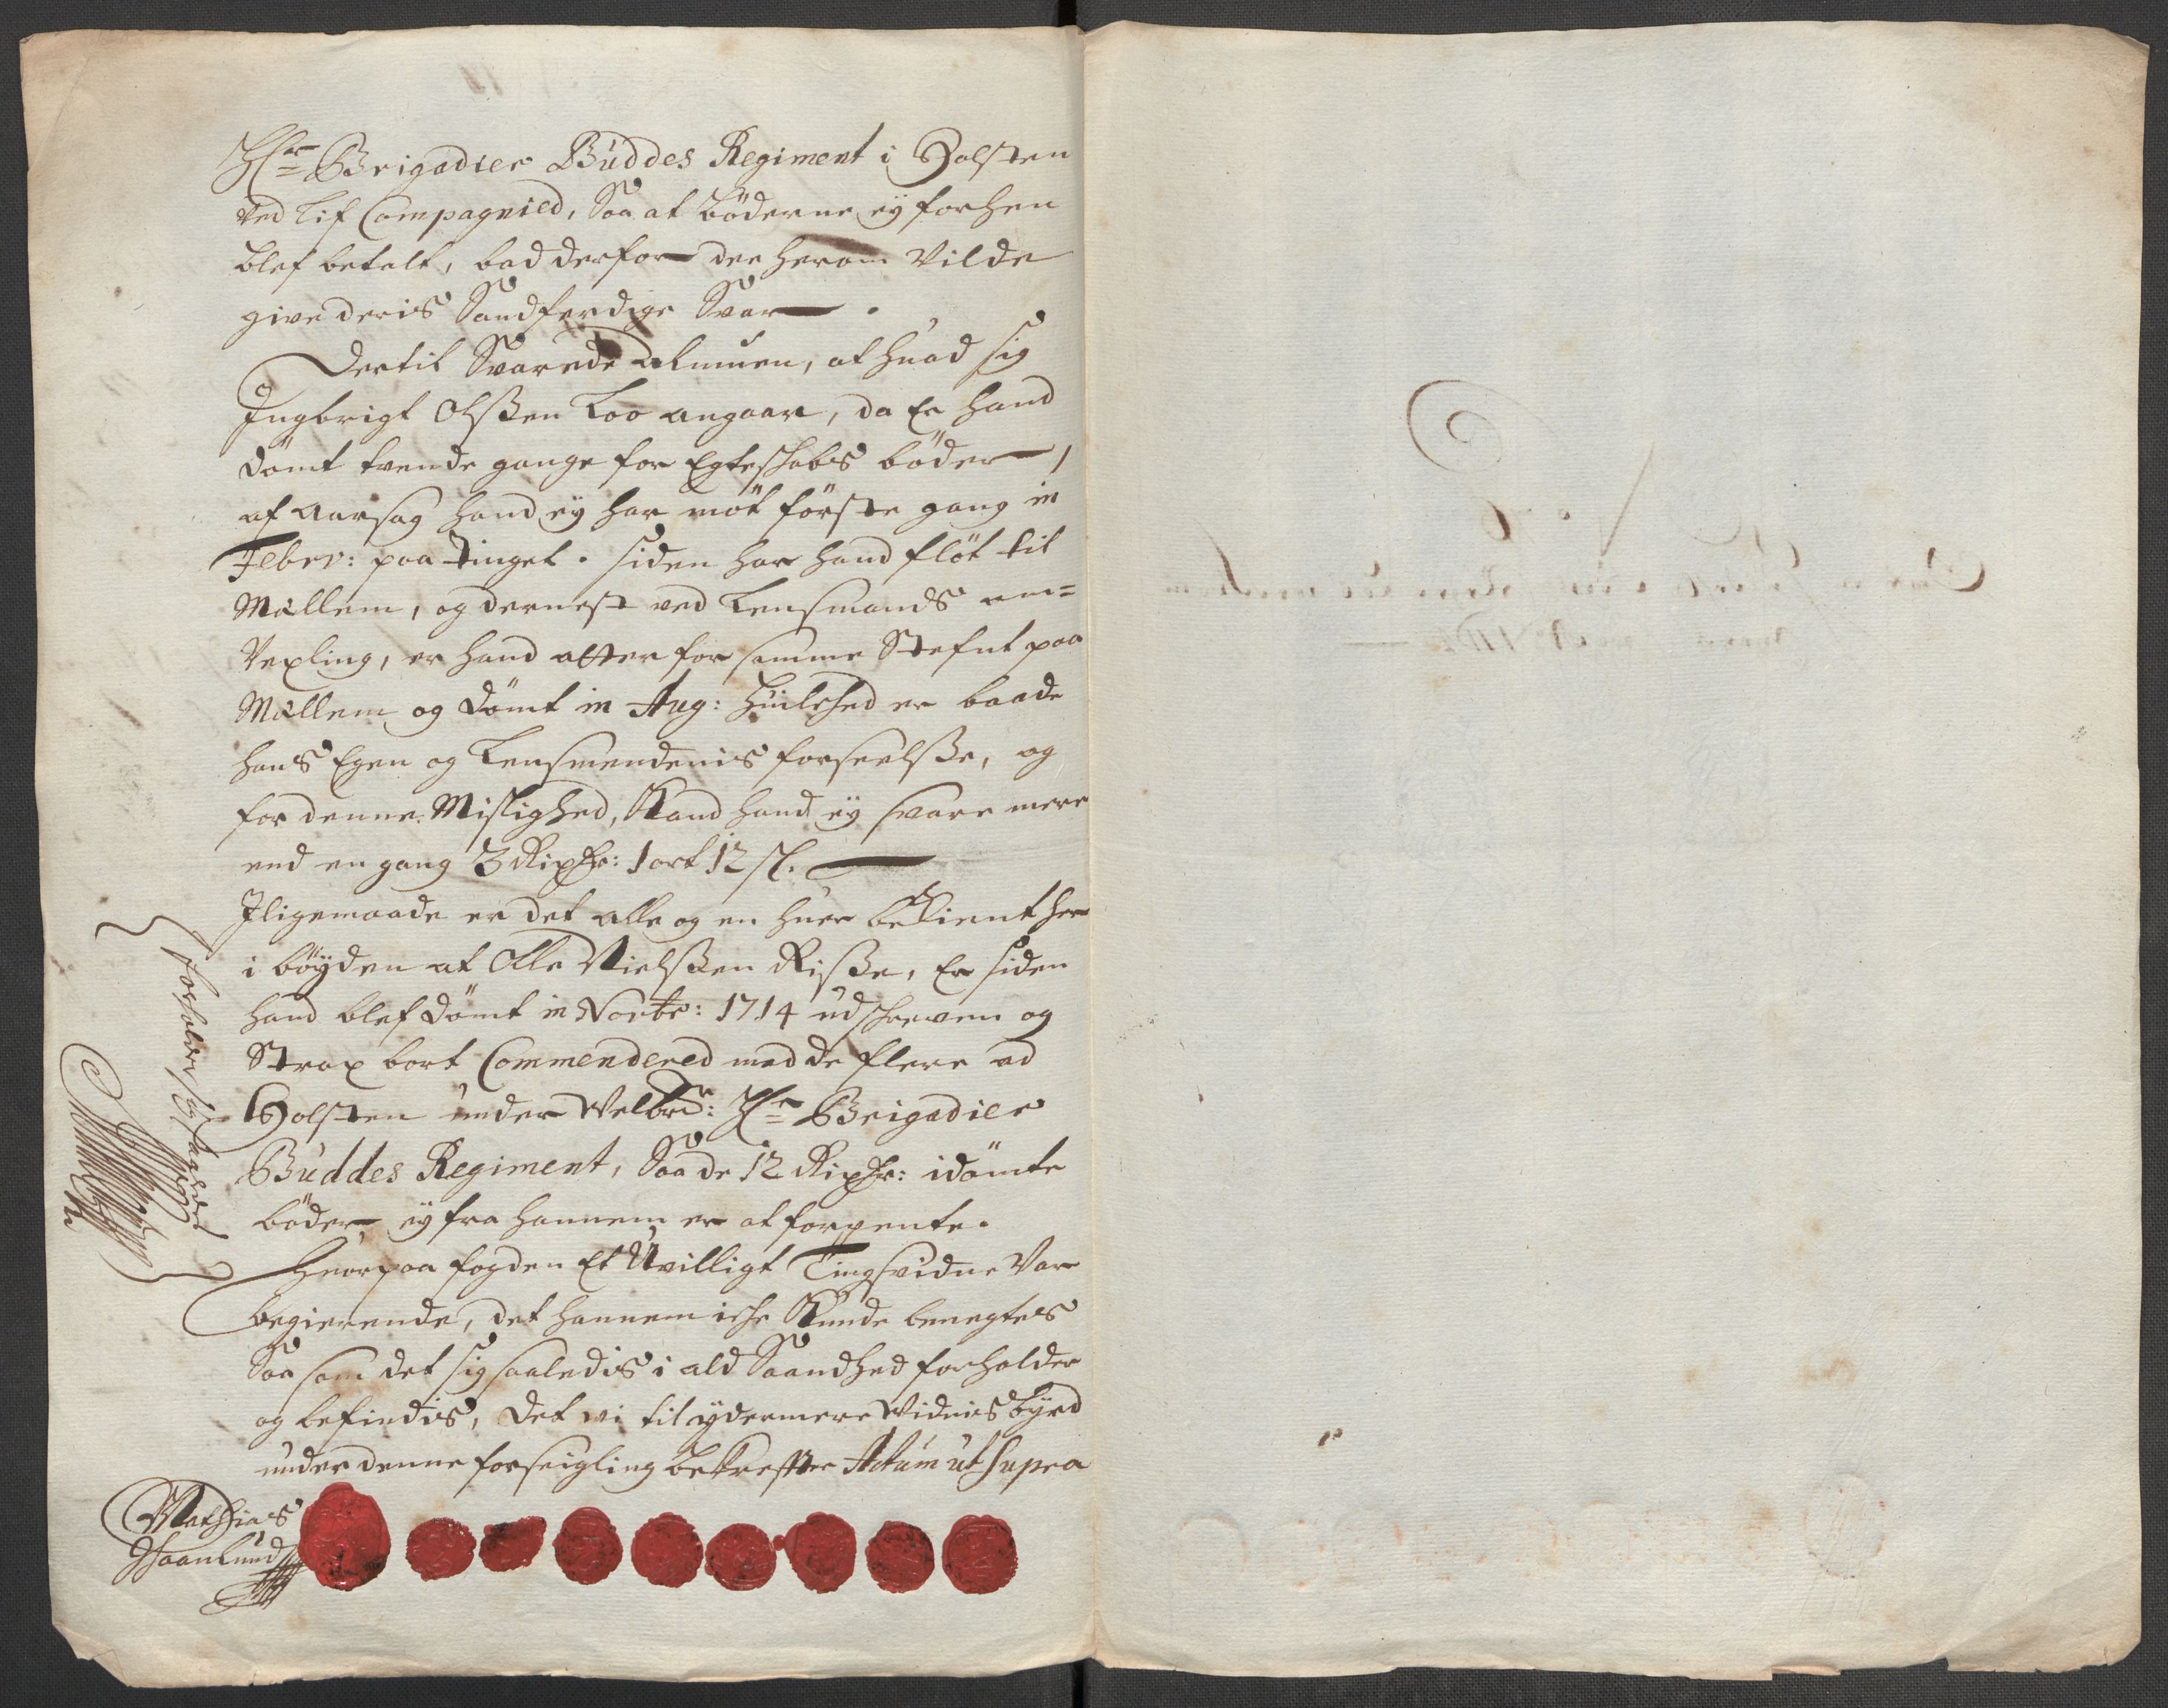 Hr: Brigadier Buddes Regiment i Holsten
ved Lif Compagnied, Saa at böderne ey forhen
blef betalt, bad derfor de herom Vilde
give deris Sandferdige Svar.
Dertil Svarede Almuen, at huad sig
Ingbrigt Olssen Loo angaar, da Er hand
dömt tvende gange for Egteskabs böder,
af Aarsag hand ey har möt förste gang in
Febr: paa Tinget. Siden har hand flöt til
Mællem, og dernest ved Lensmands om-
Vexling, er hand atter for samme Stefnt paa
Mællem og dömt in Aug: huilched er baade
hans Egen og Lensmendenis forseelsse, og
for denne Mislighed, Kand hand ey svare mere
end en gang 3 Rixdr: 1 ort 12 sl.
Iligemaade er det alle og en huer bekient her
i böyden at Olle Nielssen Risse, Er siden
hand blef dömt in Novbr: 1714 udschreven og
Strax bort Commendered med de flere ad
Holsten under Welbr: Hr: Brigadier
Buddes Regiment, Saa de 12 Rixdr: idömte
böder ey fra hannem er at forvente.
Huorpaa fogden Et Uvilligt Tingsvidne Var
begierende, det hannem iche Kunde benegtes
Saa som det sig saaledis i ald Sandhed forholder
og befindis, det vi til ydermere Vidnisbyrd
under denne forseigling bekrefter Actum ut Supra
Mathias